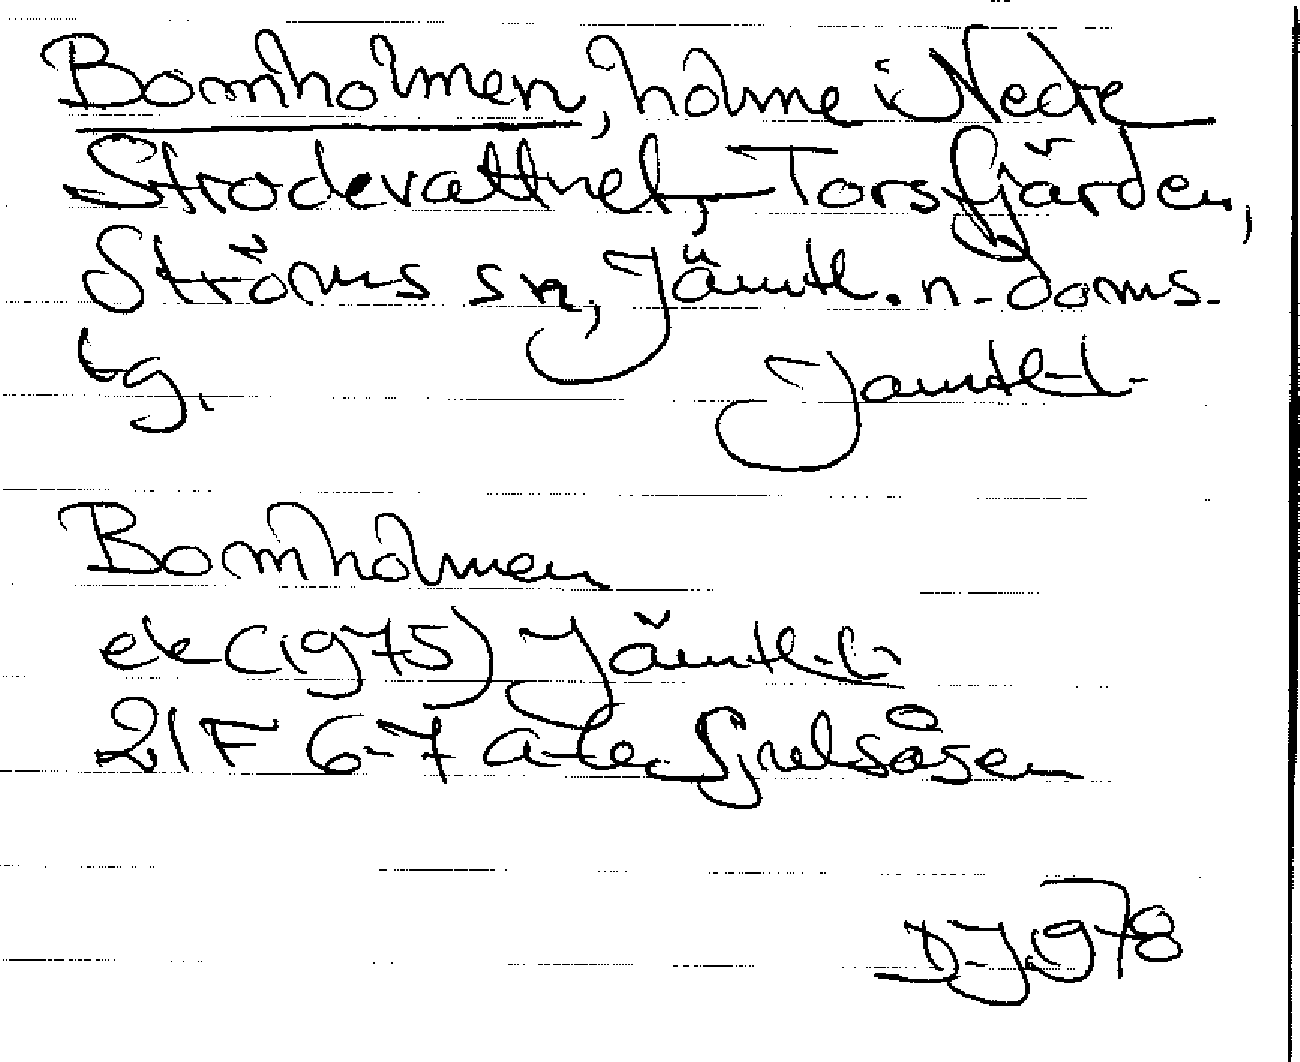 Bomholmen, holme i Nedre
Strodevattnet, Torsfjärden,
Ströms sn, Jämtl. n. doms.
tg. Jämtl. l.
Bomholmen
ek (1975) Jämtl. l.
21F 6-7 a-c Sjulsåsen
D-J. 978